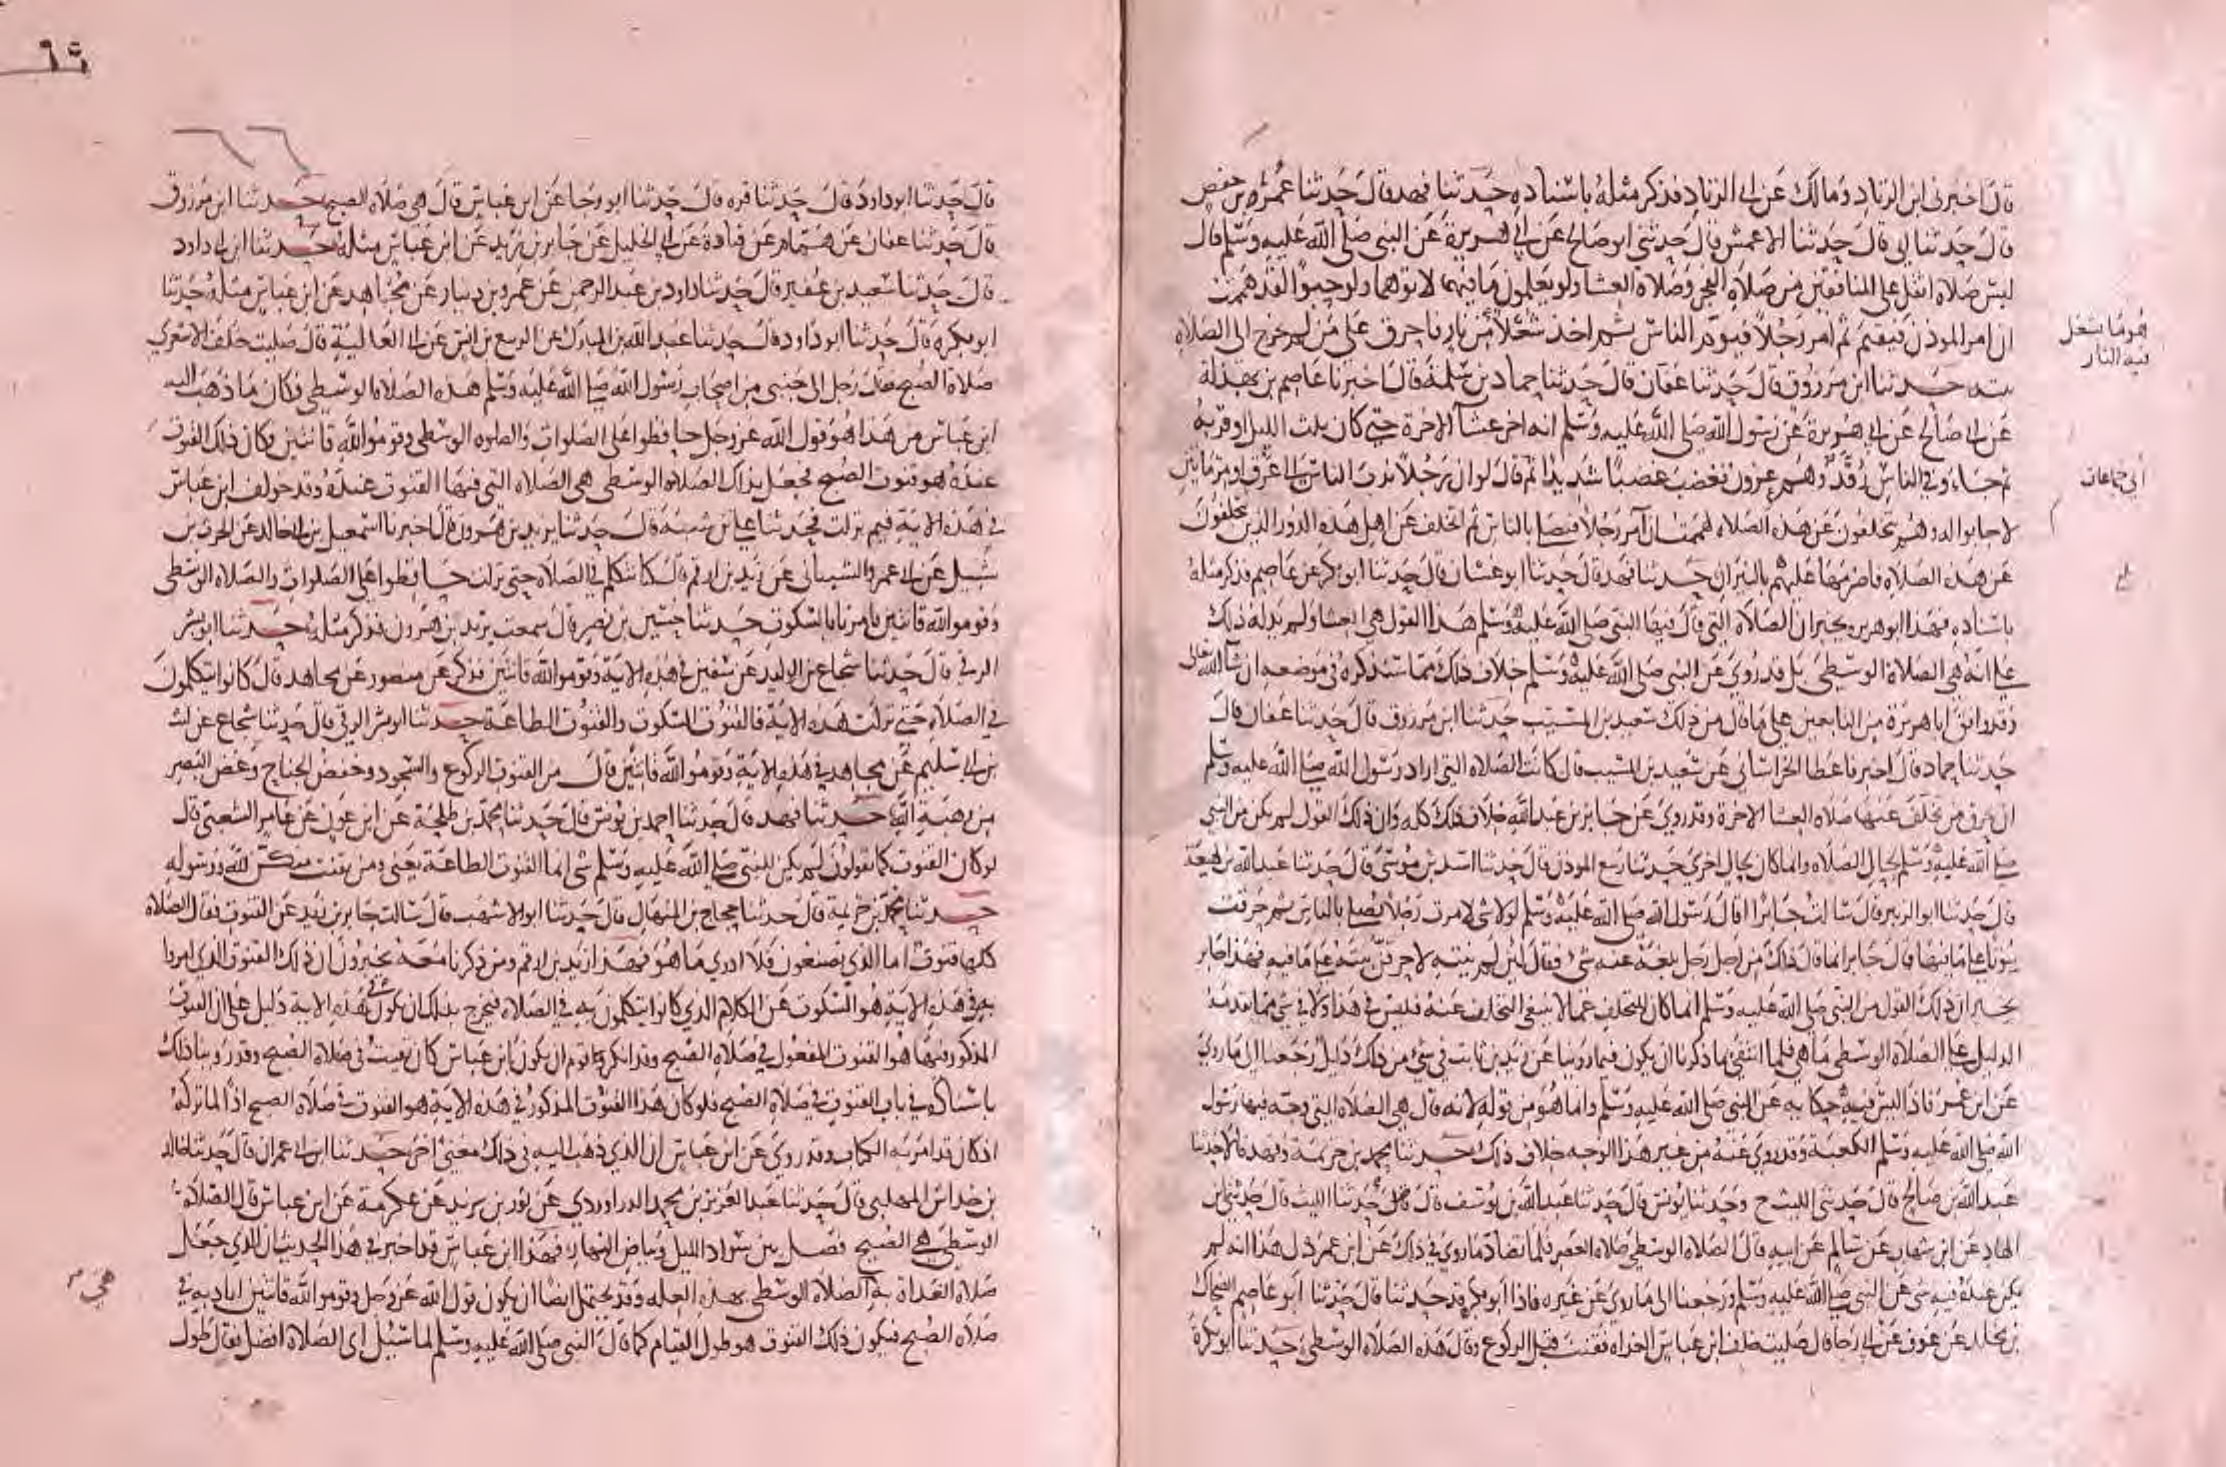 قال اخبرني ابن ابي الزناد ومالك عن ابي الزناد فذكر مثله باسناده حدثنا فهد قال حدثنا عمر بن حفص
قال حدثنا ابي قال حدثنا الاعمش قال حدثني ابو صالح عن ابي هريرة عن النبي صلى الله عليه وسلم قال
ليس صلاة اثقل على المنافقين من صلاة الفجر وصلاة العشا ولو يعلمون ما فيهما لاتوهما ولو حبوا لقد هممت
ان امر الموذن فيقيم ثم امر رجلا فيوم الناس ثم اخذ شعلا من نار فاحرق على من لم يخرج الى الصلاة
هو ما يشعل
فيه النار
حدثنا ابن مرزوق قال حدثنا عفان قال حدثنا حماد بن سلمة قال اخبرنا عاصم بن بهدلة
عن ابي صالح عن ابي هريرة عن رسول الله صلى الله عليه وسلم انه اخر عشا الاخرة حتى كان ثلث الليل او قربه
ثم جاء وفي الناس رقد وهم عزون فغضب غضبا شديدا ثم قال لو ان رجلا ندب الناس الى عرق او مرماتين
أي جماعات
لاجابوا له وهم يتخلفون عن هذه الصلاة لهممت ان آمر رجلا فيصلي بالناس ثم اتخلف عن اهل هذه الدور الذين يتخلفون
عن هذه الصلاة فاضرمها عليهم بالنيران حدثنا فهد قال حدثنا ابو غسان قال حدثنا ابو بكر عن عاصم فذكر مثله
باسناده فهذا ابو هريرة يخبر ان الصلاة التي قال فيها النبي صلى الله عليه وسلم هذا القول هي العشا ولم يدله ذلك
على انها هي الصلاة الوسطى بل قد روي عن النبي صلى الله عليه وسلم خلاف ذلك مما سنذكره في موضعه ان شا الله تعالى
وقد وافق ابا هريرة من التابعين على ما قال من ذلك سعيد بن المسيب حدثنا ابن مرزوق قال حدثنا عفان قال
حدثنا حماد قال اخبرنا عطا الخراساني عن سعيد بن المسيب قال كانت الصلاة التي اراد رسول الله صلى الله عليه وسلم
ان يحرق من تخلف عنها صلاة العشا الاخرة وقد روي عن جابر بن عبد الله خلاف ذلك كله وان ذلك القول لم يكن من النبي
صلى الله عليه وسلم لحال الصلاة وانما كان لحال اخرى حدثنا ربيع الموذن قال حدثنا اسد بن موسى قال حدثنا عبد الله بن لهيعة
قال حدثنا ابو الزبير قال سالت جابرا اقال رسول الله صلى الله عليه وسلم لولا شي لامرت رجلا يصلي بالناس ثم حرقت
بيوتا على ما فيها قال جابر انما قال ذلك من اجل رجل بلغه عنه شي فقال لئن لم ينته لاحرقن بيته على ما فيه فهذا جابر
يخبر ان ذلك القول من النبي صلى الله عليه وسلم انما كان للتخلف عما لا ينبغي التخلف عنه فليس في هذا ولا في شي مما تقدمه
الدليل على الصلاة الوسطى ما هي فلما انتفى بما ذكرنا ان يكون فيما روينا عن زيد بن ثابت في شي من ذلك دليل رجعنا الى ما روي
عن ابن عمر فاذا ليس فيه حكاية عن النبي صلى الله عليه وسلم وانما هو من قوله لانه قال هي الصلاة التي وجه فيها رسول
الله صلى الله عليه وسلم الكعبة وقد روي عنه من غير هذا الوجه خلاف ذلك حدثنا محمد بن خزيمة وفهد قالا حدثنا
عبد الله بن صالح قال حدثني الليث ح وحدثنا يونس قال حدثنا عبد الله بن يوسف قال حدثنا الليث قال حدثني ابن
الهاد عن ابن شهاب عن سالم عن ابيه قال الصلاة الوسطى صلاة العصر فلما تضاد ما روي في ذلك عن ابن عمر دل هذا انه لم
يكن عنده فيه شي عن النبي صلى الله عليه وسلم ورجعنا الى ما روي عن غيره فاذا ابو بكرة قد حدثنا قال حدثنا ابو عاصم الضحاك
بن مخلد عن عوف عن ابي رجا قال صليت خلف ابن عباس الغداة فقنت قبل الركوع وقال هذه الصلاة الوسطى حدثنا ابو بكرة
٦٥
قال حدثنا ابو داود قال حدثنا قرة قال حدثنا ابو رجا عن ابن عباس قال هي صلاة الصبح حدثنا ابن مرزوق
قال حدثنا عفان عن همام عن قتادة عن ابي الخليل عن جابر بن زيد عن ابن عباس مثله حدثنا ابن ابي داود
قال حدثنا سعيد بن عفير قال حدثنا داود بن عبد الرحمن عن عمرو بن دينار عن مجاهد عن ابن عباس مثله حدثنا
ابو بكرة قال حدثنا ابو داود قال حدثنا عبد الله بن المبارك عن الربيع بن انس عن ابي العالية قال صليت خلف الاشعري
صلاة الصبح فقال رجل الى جنبي من اصحاب رسول الله صلى الله عليه وسلم هذه الصلاة الوسطى فكان ما ذهب اليه
ابن عباس من هذا هو قول الله عز وجل حافظوا على الصلوات والصلوة الوسطى وقوموا لله قانتين فكان ذلك القنوت
عنده هو قنوت الصبح فجعل بذلك الصلاة الوسطى هي الصلاة التي فيها القنوت عنده وقد خولف ابن عباس
في هذه الاية فيم نزلت فحدثنا علي بن شيبة قال حدثنا يزيد بن هرون قال اخبرنا اسمعيل بن ابي خالد عن الحرث بن
شبيل عن ابي عمرو الشيباني عن زيد بن ارقم قال كنا نتكلم في الصلاة حتى نزلت حافظوا على الصلوات والصلاة الوسطى
وقوموا لله قانتين فامرنا بالسكوت حدثنا حسين بن نصر قال سمعت يزيد بن هرون فذكر مثله حدثنا ابو بشر
الرقي قال حدثنا شجاع بن الوليد عن سفين في هذه الاية وقوموا لله قانتين فذكر عن منصور عن مجاهد قال كانوا يتكلمون
في الصلاة حتى نزلت هذه الاية فالقنوت السكوت والقنوت الطاعة حدثنا ابو بشر الرقي قال حدثنا شجاع عن ليث
بن ابي سليم عن مجاهد في هذه الاية وقوموا لله قانتين قال من القنوت الركوع والسجود وخفض الجناح وغض البصر
من رهبة الله حدثنا فهد قال حدثنا احمد بن يونس قال حدثنا محمد بن طلحة عن ابن عون عن عامر الشعبي قال
لو كان القنوت كما تقولون لم يكن للنبي صلى الله عليه وسلم شي انما القنوت الطاعة يعني ومن يقنت منكن لله ورسوله
حدثنا محمد بن خزيمة قال حدثنا حجاج بن المنهال قال حدثنا ابو الاشهب قال سالت جابر بن زيد عن القنوت فقال الصلاة
كلها قنوت اما الذي تصنعون فلا ادري ما هو فهذا زيد بن ارقم ومن ذكرنا معه يخبرون ان ذلك القنوت الذي امروا
به في هذه الاية هو السكوت عن الكلام الذي كانوا يتكلمون به في الصلاة فيخرج بذلك ان يكون في هذه الاية دليل على ان القنوت
المذكور فيها هو القنوت المفعول في صلاة الصبح وقد انكر قوم ان يكون ابن عباس كان يقنت في صلاة الصبح وقد روينا ذلك
باسناده في باب القنوت في صلاة الصبح فلو كان هذا القنوت المذكور في هذه الاية هو القنوت في صلاة الصبح اذا لما تركه
اذ كان قد امر به الكتاب وقد روي عن ابن عباس ان الذي ذهب اليه في ذلك معنى اخر حدثنا ابن ابي عمران قال حدثنا خالد
بن خداش المهلبي قال حدثنا عبد العزيز بن محمد الدراوردي عن ثور بن يزيد عن عكرمة عن ابن عباس قال الصلاة
الوسطى هي الصبح فصل بين سواد الليل وبياض النهار فهذا ابن عباس قد اخبر في هذا الحديث ان الذي جعل
صلاة الغداة به الصلاة الوسطى هذه العلة وقد يحتمل ايضا ان يكون قول الله عز وجل وقوموا لله قانتين اراد به في
هي
صلاة الصبح فيكون ذلك القنوت هو طول القيام كما قال النبي صلى الله عليه وسلم لما سئل اي الصلاة افضل فقال طول